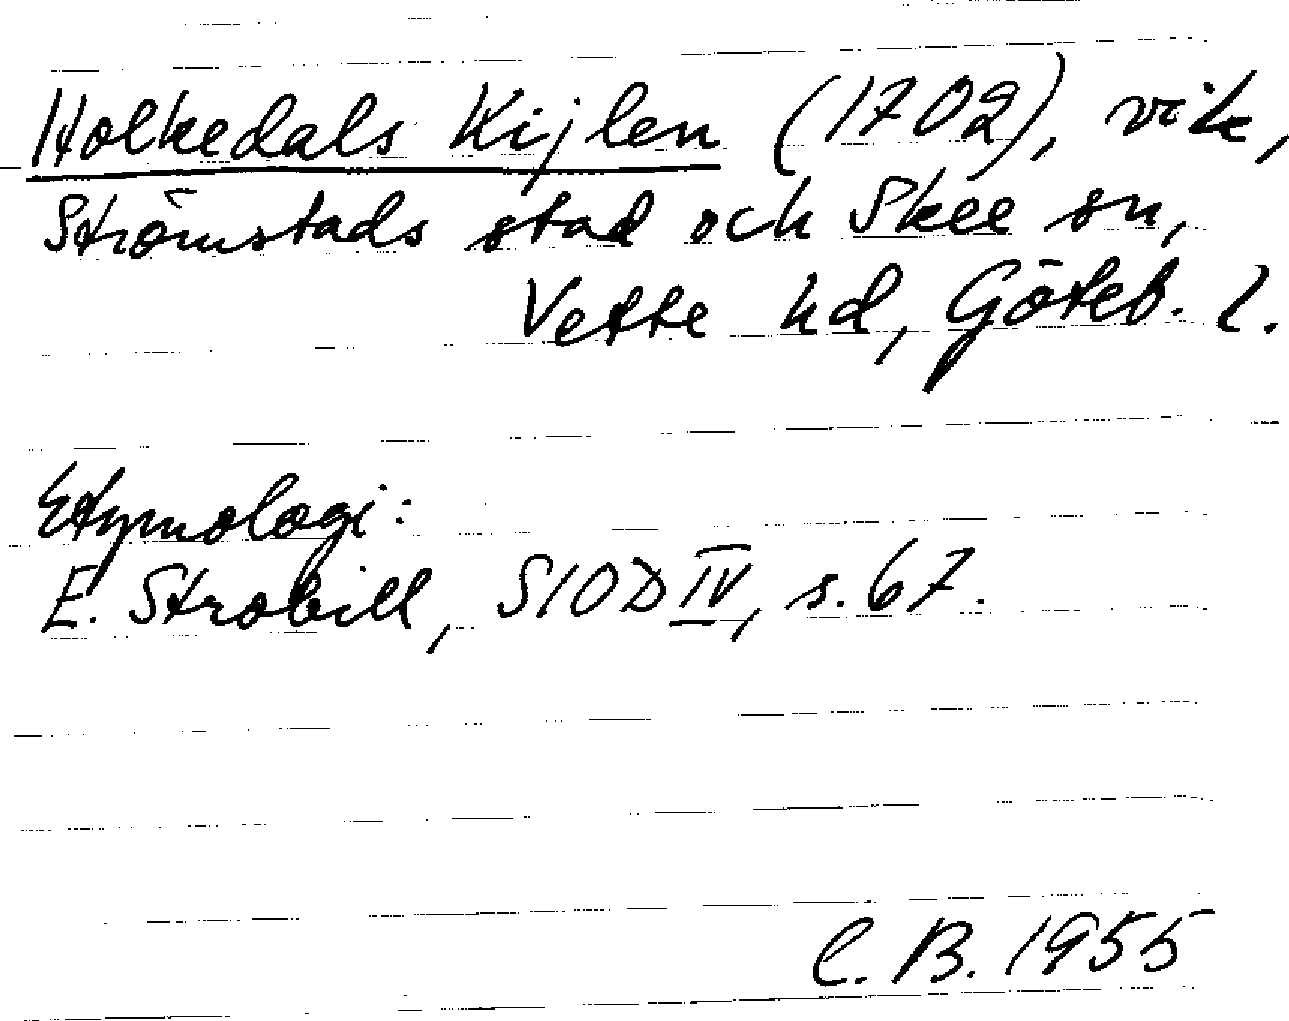 Holkedals Kijlen (1702), vik,
Strömstads stad och Skee sn,
Vette hd, Göteb. l.
Etymologi:
E. Strobill, SIOD IV, s. 67.
C. B. 1955